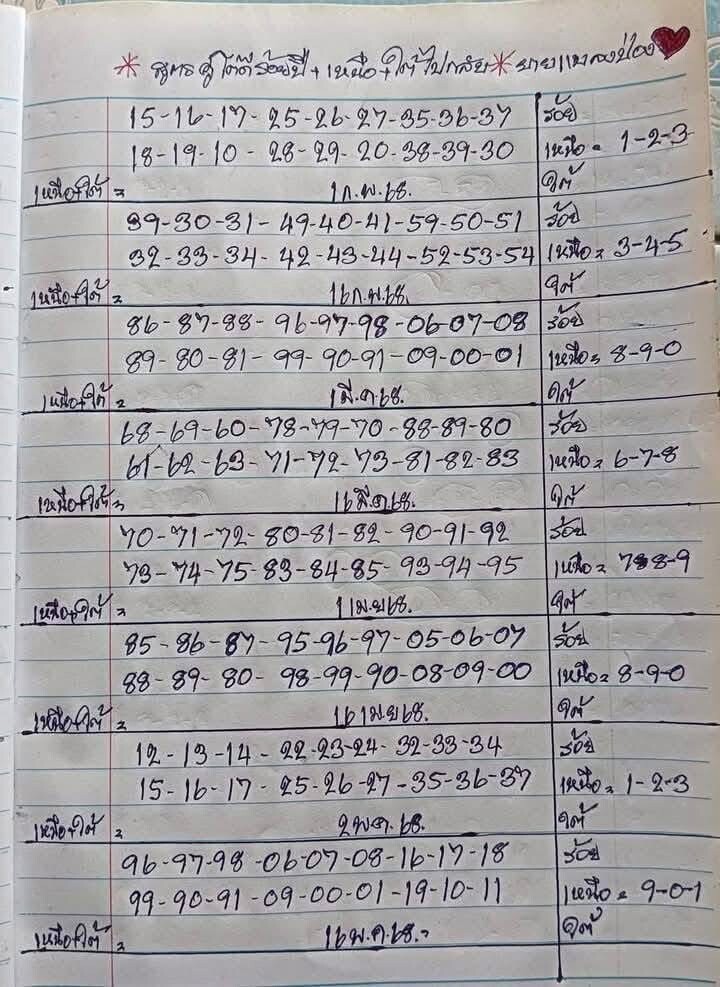 * สูตร คู่โต๊ดร้อยปี + เหนือ + ใต้ ไปกลับ * ยายแมลงป่อง
15-16-17-25-26-27-35-36-37 ร้อย
18-19-10-28-29-20-38-39-30 เหนือ = 1-2-3
เหนือ+ใต้ = 1ก.พ.68. ใต้
39-30-31-49-40-41-59-50-51 ร้อย
32-33-34-42-43-44-52-53-54 เหนือ = 3-4-5
เหนือ+ใต้ = 16ก.พ.68. ใต้
86-87-88-96-97-98-06-07-08 ร้อย
89-80-81-99-90-91-09-00-01 เหนือ = 8-9-0
เหนือ+ใต้ = 1มี.ค68. ใต้
68-69-60-78-79-70-88-89-80 ร้อย
61-62-63-71-72-73-81-82-83 เหนือ = 6-7-8
เหนือ+ใต้ = 16มี.ค68. ใต้
70-71-72-80-81-82-90-91-92 ร้อย
73-74-75-83-84-85-93-94-95 เหนือ = 7-8-9
เหนือ+ใต้ = 1เม.ย68. ใต้
85-86-87-95-96-97-05-06-07 ร้อย
88-89-80-98-99-90-08-09-00 เหนือ = 8-9-0
เหนือ+ใต้ = 16เมย68. ใต้
12-13-14-22-23-24-32-33-34 ร้อย
15-16-17-25-26-27-35-36-37 เหนือ = 1-2-3
เหนือ+ใต้ = 2พค.68. ใต้
96-97-98-06-07-08-16-17-18 ร้อย
99-90-91-09-00-01-19-10-11 เหนือ = 9-0-1
เหนือ+ใต้ = 16พ.ค.68.= ใต้